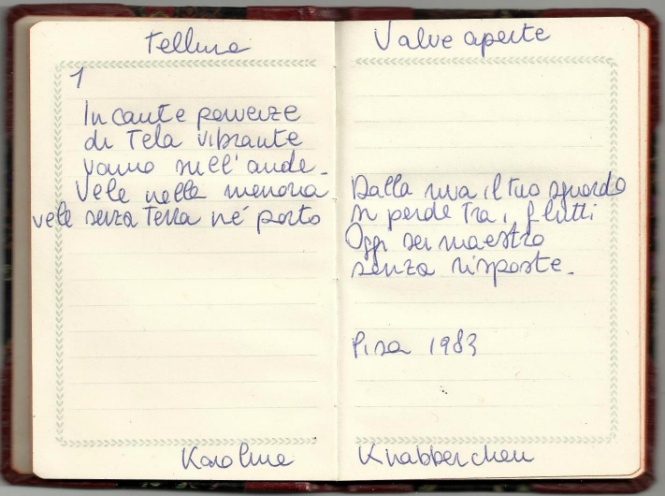 Tellina
1
Incaute parvenze
di Tela vibrante
vanno sull'onde.
Vele nella memoria
vele senza Terra né porto
Karoline
Valve aperte
Dalla riva il tuo sguardo
si perde Tra i flutti
Oggi sei maestro
senza risposte.
Pisa 1983
Knabberchen